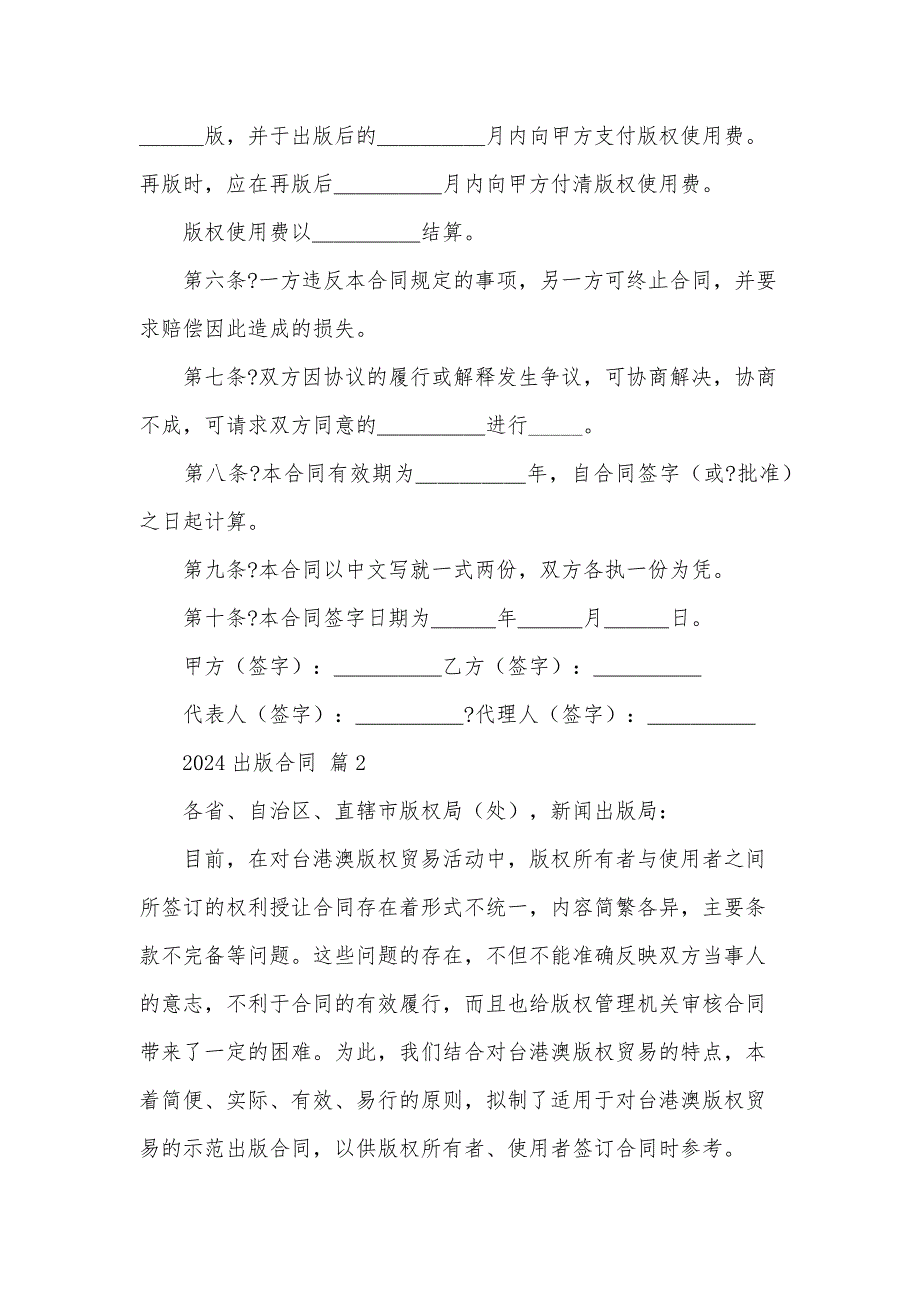 ______版，并于出版后的__________月内向甲方支付版权使用费。
再版时，应在再版后__________月内向甲方付清版权使用费。
版权使用费以__________结算。
第六条?一方违反本合同规定的事项，另一方可终止合同，并要
求赔偿因此造成的损失。
第七条?双方因协议的履行或解释发生争议，可协商解决，协商
不成，可请求双方同意的__________进行_____。
第八条?本合同有效期为__________年，自合同签字（或?批准）
之日起计算。
第九条?本合同以中文写就一式两份，双方各执一份为凭。
第十条?本合同签字日期为______年______月______日。
甲方（签字）：__________乙方（签字）：__________
代表人（签字）：__________?代理人（签字）：__________
2024出版合同 篇2
各省、自治区、直辖市版权局（处），新闻出版局：
目前，在对台港澳版权贸易活动中，版权所有者与使用者之间
所签订的权利授让合同存在着形式不统一，内容简繁各异，主要条
款不完备等问题。这些问题的存在，不但不能准确反映双方当事人
的意志，不利于合同的有效履行，而且也给版权管理机关审核合同
带来了一定的困难。为此，我们结合对台港澳版权贸易的特点，本
着简便、实际、有效、易行的原则，拟制了适用于对台港澳版权贸
易的示范出版合同，以供版权所有者、使用者签订合同时参考。